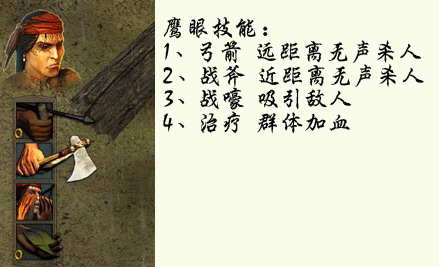 鹰眼技能：
1、弓箭 远距离无声杀人
2、战斧 近距离无声杀人
3、战嚎 吸引敌人
4、治疗 群体加血
0
0